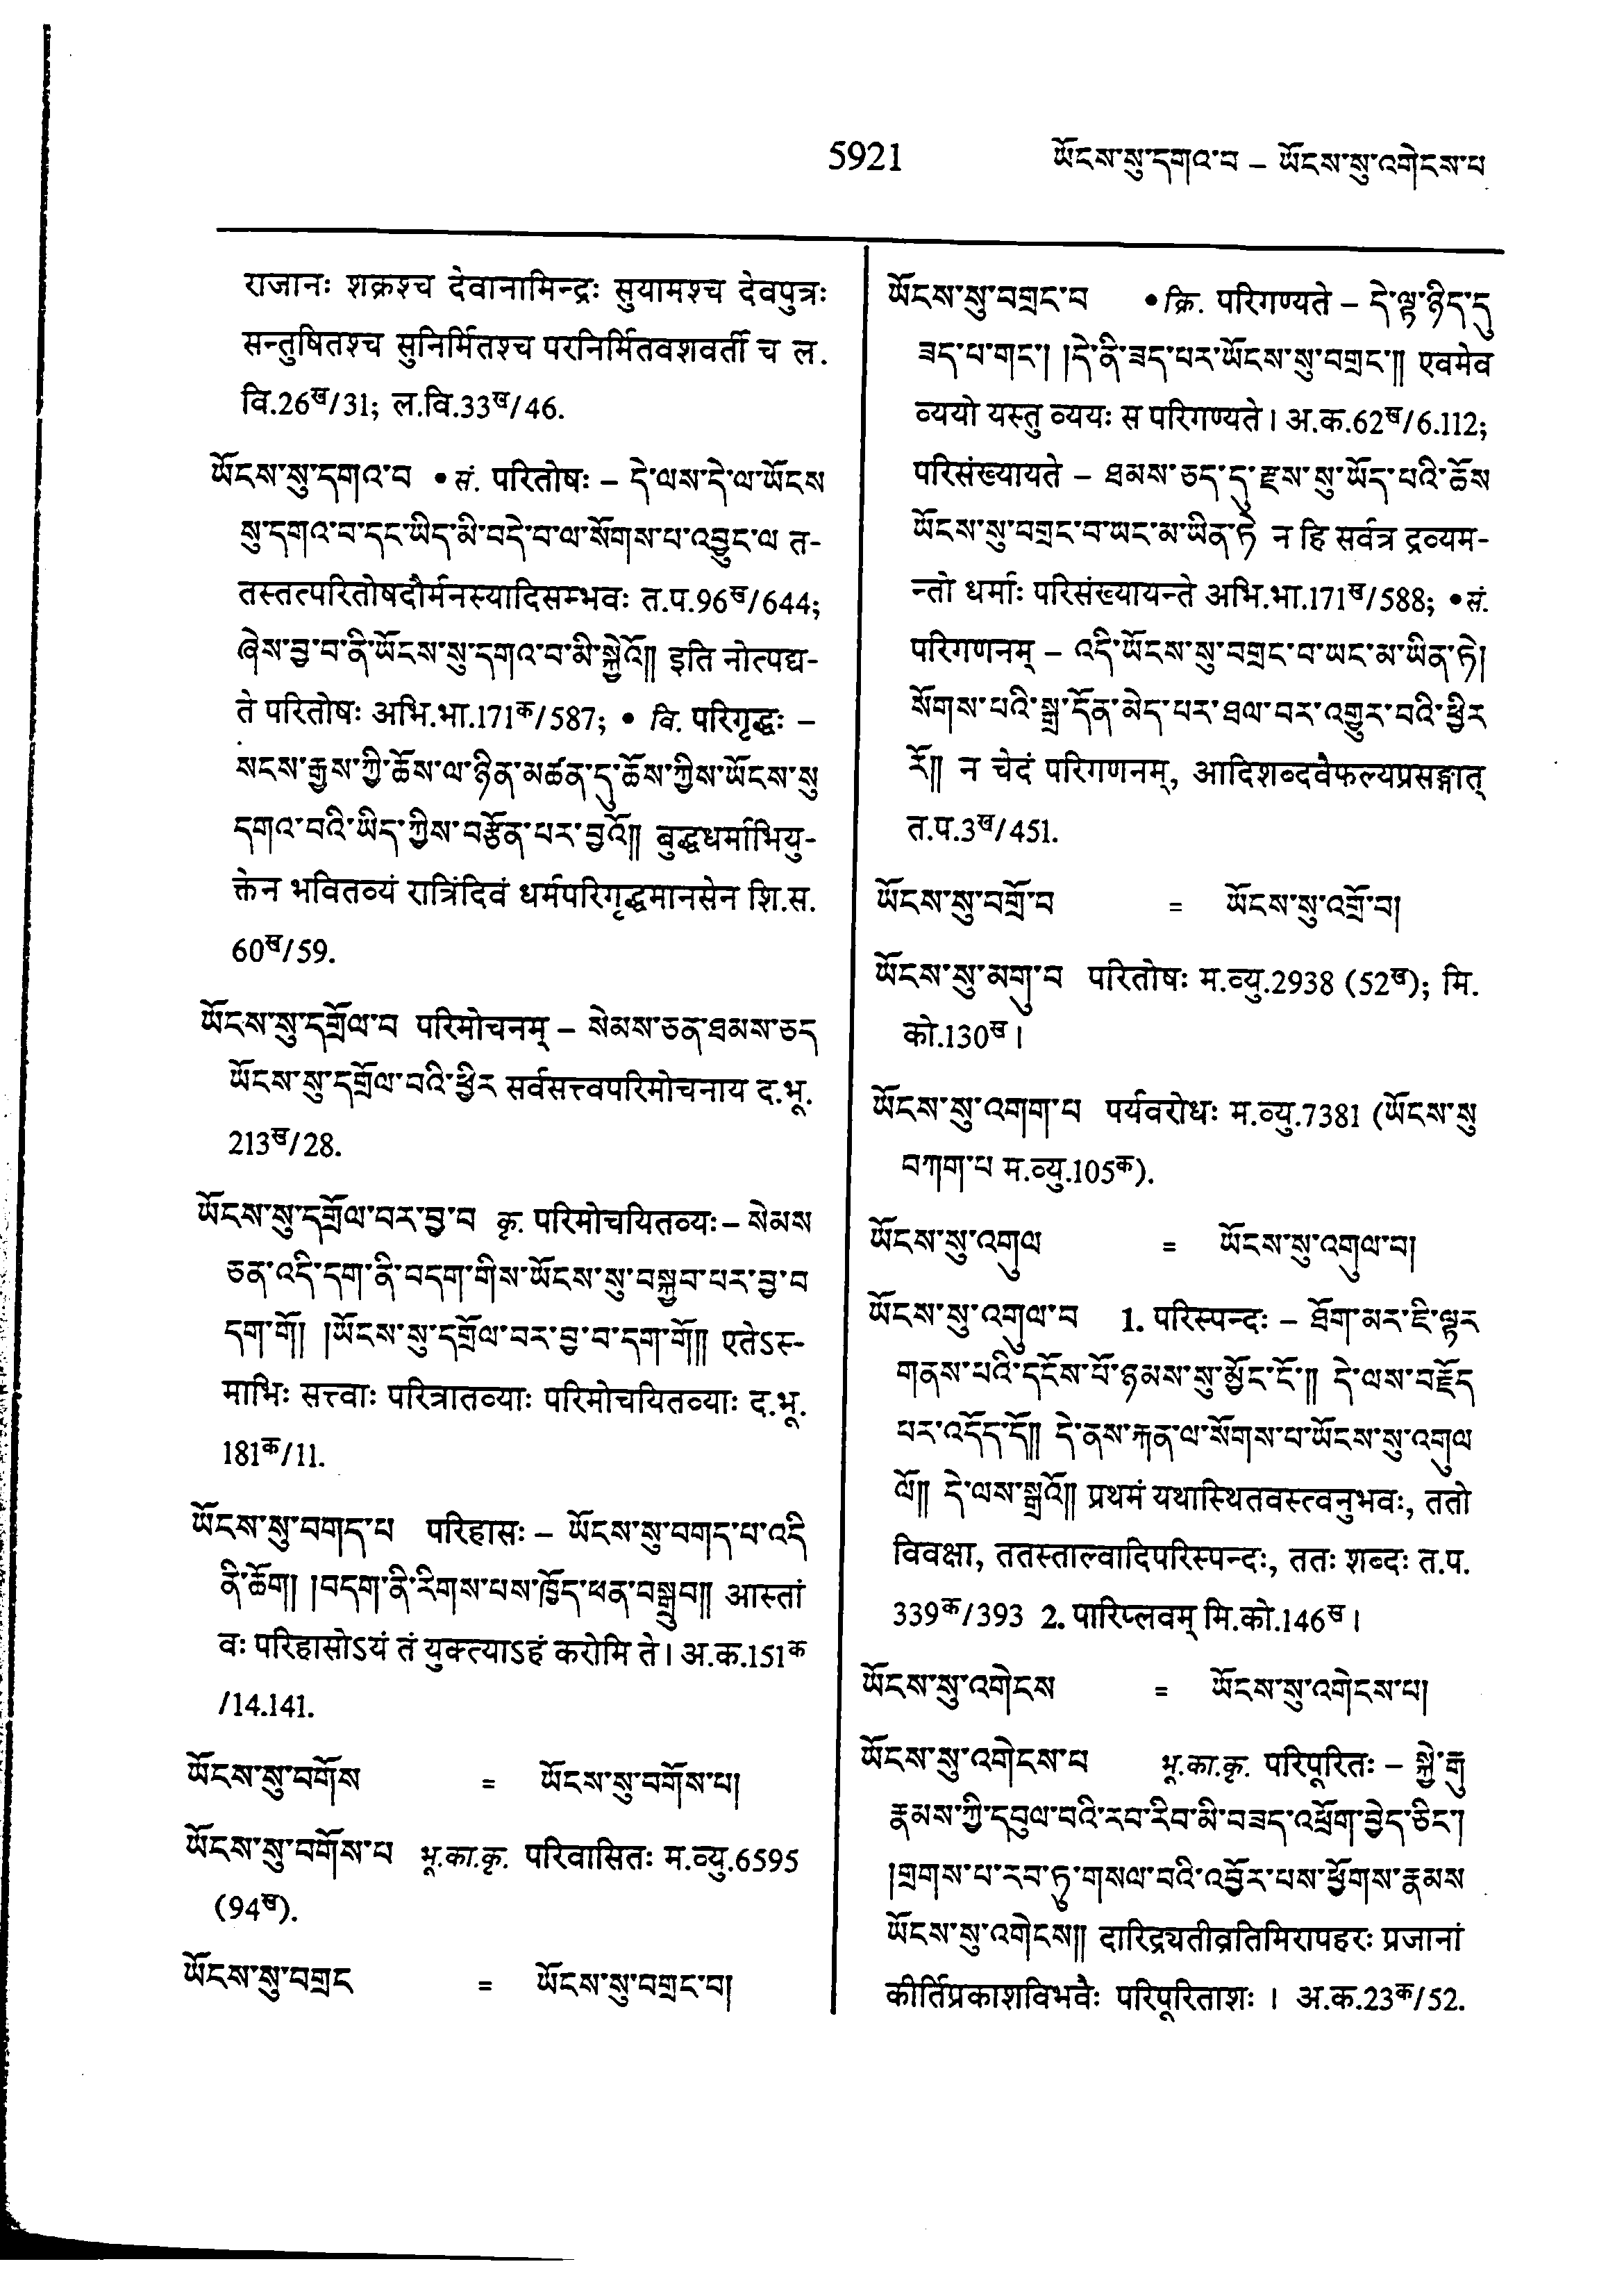 5921 ཡོངས་སུ་དགའ་བ – ཡོངས་སུ་འགེངས་པ
राजानः शक्रश्च देवानामिन्द्रः सुयामश्च देवपुत्रः
सन्तुषितश्च सुनिर्मितश्च परनिर्मितवशवर्ती च ल.
वि.26ख/31; ल.वि.33ख/46.
ཡོངས་སུ་དགའ་བ • सं. परितोषः – དེ་ལས་དེ་ལ་ཡོངས
སུ་དགའ་བ་དང་ཡིད་མི་བདེ་བ་ལ་སོགས་པ་འབྱུང་ལ त-
तस्तत्परितोषदौर्मनस्यादिसम्भवः त.प.96ख/644;
ཞེས་བྱ་བ་ནི་ཡོངས་སུ་དགའ་བ་མི་སྐྱེའོ།། इति नोत्पद्य-
ते परितोषः अभि.भा.171क/587; • वि. परिगृद्धः –
སངས་རྒྱས་ཀྱི་ཆོས་ལ་ཉིན་མཚན་དུ་ཆོས་ཀྱིས་ཡོངས་སུ
དགའ་བའི་ཡིད་ཀྱིས་བརྩོན་པར་བྱའོ།། बुद्धधर्माभियु-
क्तेन भवितव्यं रात्रिंदिवं धर्मपरिगृद्धमानसेन शि.स.
60ख/59.
ཡོངས་སུ་དགྲོལ་བ परिमोचनम् – སེམས་ཅན་ཐམས་ཅད
ཡོངས་སུ་དགྲོལ་བའི་ཕྱིར सर्वसत्त्वपरिमोचनाय द.भू.
213ख/28.
ཡོངས་སུ་དགྲོལ་བར་བྱ་བ कृ. परिमोचयितव्यः – སེམས
ཅན་འདི་དག་ནི་བདག་གིས་ཡོངས་སུ་བསྐྱབ་པར་བྱ་བ
དག་གོ། །ཡོངས་སུ་དགྲོལ་བར་བྱ་བ་དག་གོ།། एतेऽस्-
माभिः सत्त्वाः परित्रातव्याः परिमोचयितव्याः द.भू.
181क/11.
ཡོངས་སུ་བགད་པ परिहासः – ཡོངས་སུ་བགད་པ་འདི
ནི་ཆོག། །བདག་ནི་རིགས་པས་ཁྱོད་ཕན་བསྒྲུབ།། आस्तां
वः परिहासोऽयं तं युक्त्याऽहं करोमि ते। अ.क.151क
/14.141.
ཡོངས་སུ་བགོས = ཡོངས་སུ་བགོས་པ།
ཡོངས་སུ་བགོས་པ भू.का.कृ. परिवासितः म.व्यु.6595
(94ख).
ཡོངས་སུ་བགྲང = ཡོངས་སུ་བགྲང་བ།
ཡོངས་སུ་བགྲང་བ • क्रि. परिगण्यते – དེ་ལྟ་ཉིད་དུ
ཟད་པ་གང་། །དེ་ནི་ཟད་པར་ཡོངས་སུ་བགྲང་།། एवमेव
व्ययो यस्तु व्ययः स परिगण्यते। अ.क.62ख/6.112;
परिसंख्यायते – ཐམས་ཅད་དུ་རྫས་སུ་ཡོད་པའི་ཆོས
ཡོངས་སུ་བགྲང་བ་ཡང་མ་ཡིན་ཏེ न हि सर्वत्र द्रव्यम-
न्तो धर्माः परिसंख्यायन्ते अभि.भा.171ख/588; • सं.
परिगणनम् – འདི་ཡོངས་སུ་བགྲང་བ་ཡང་མ་ཡིན་ཏེ།
སོགས་པའི་སྒྲ་དོན་མེད་པར་ཐལ་བར་འགྱུར་བའི་ཕྱིར
རོ།། न चेदं परिगणनम्, आदिशब्दवैफल्यप्रसङ्गात्
त.प.3ख/451.
ཡོངས་སུ་བགྲོ་བ = ཡོངས་སུ་འགྲོ་བ།
ཡོངས་སུ་མགུ་བ परितोषः म.व्यु.2938 (52ख); मि.
को.130ख।
ཡོངས་སུ་འགག་པ पर्यवरोधः म.व्यु.7381 (ཡོངས་སུ
བཀག་པ म.व्यु.105क).
ཡོངས་སུ་འགུལ = ཡོངས་སུ་འགུལ་བ།
ཡོངས་སུ་འགུལ་བ 1. परिस्पन्दः – ཐོག་མར་ཇི་ལྟར
གནས་པའི་དངོས་པོ་ཉམས་སུ་མྱོང་ངོ་།། དེ་ལས་བརྗོད
པར་འདོད་དོ།། དེ་ནས་རྐན་ལ་སོགས་པ་ཡོངས་སུ་འགུལ
ལོ།། དེ་ལས་སྒྲའོ།། प्रथमं यथास्थितवस्त्वनुभवः, ततो
विवक्षा, ततस्ताल्वादिपरिस्पन्दः, ततः शब्दः त.प.
339क/393 2. पारिप्लवम् मि.को.146ख।
ཡོངས་སུ་འགེངས = ཡོངས་སུ་འགེངས་པ།
ཡོངས་སུ་འགེངས་པ भू.का.कृ. परिपूरितः – སྐྱེ་རྒུ
རྣམས་ཀྱི་དབུལ་བའི་རབ་རིབ་མི་བཟད་འཕྲོག་བྱེད་ཅིང་།
།གྲགས་པ་རབ་ཏུ་གསལ་བའི་འབྱོར་པས་ཕྱོགས་རྣམས
ཡོངས་སུ་འགེངས།། दारिद्र्यतीव्रतिमिरापहरः प्रजानां
कीर्तिप्रकाशविभवैः परिपूरिताशः। अ.क.23क/52.